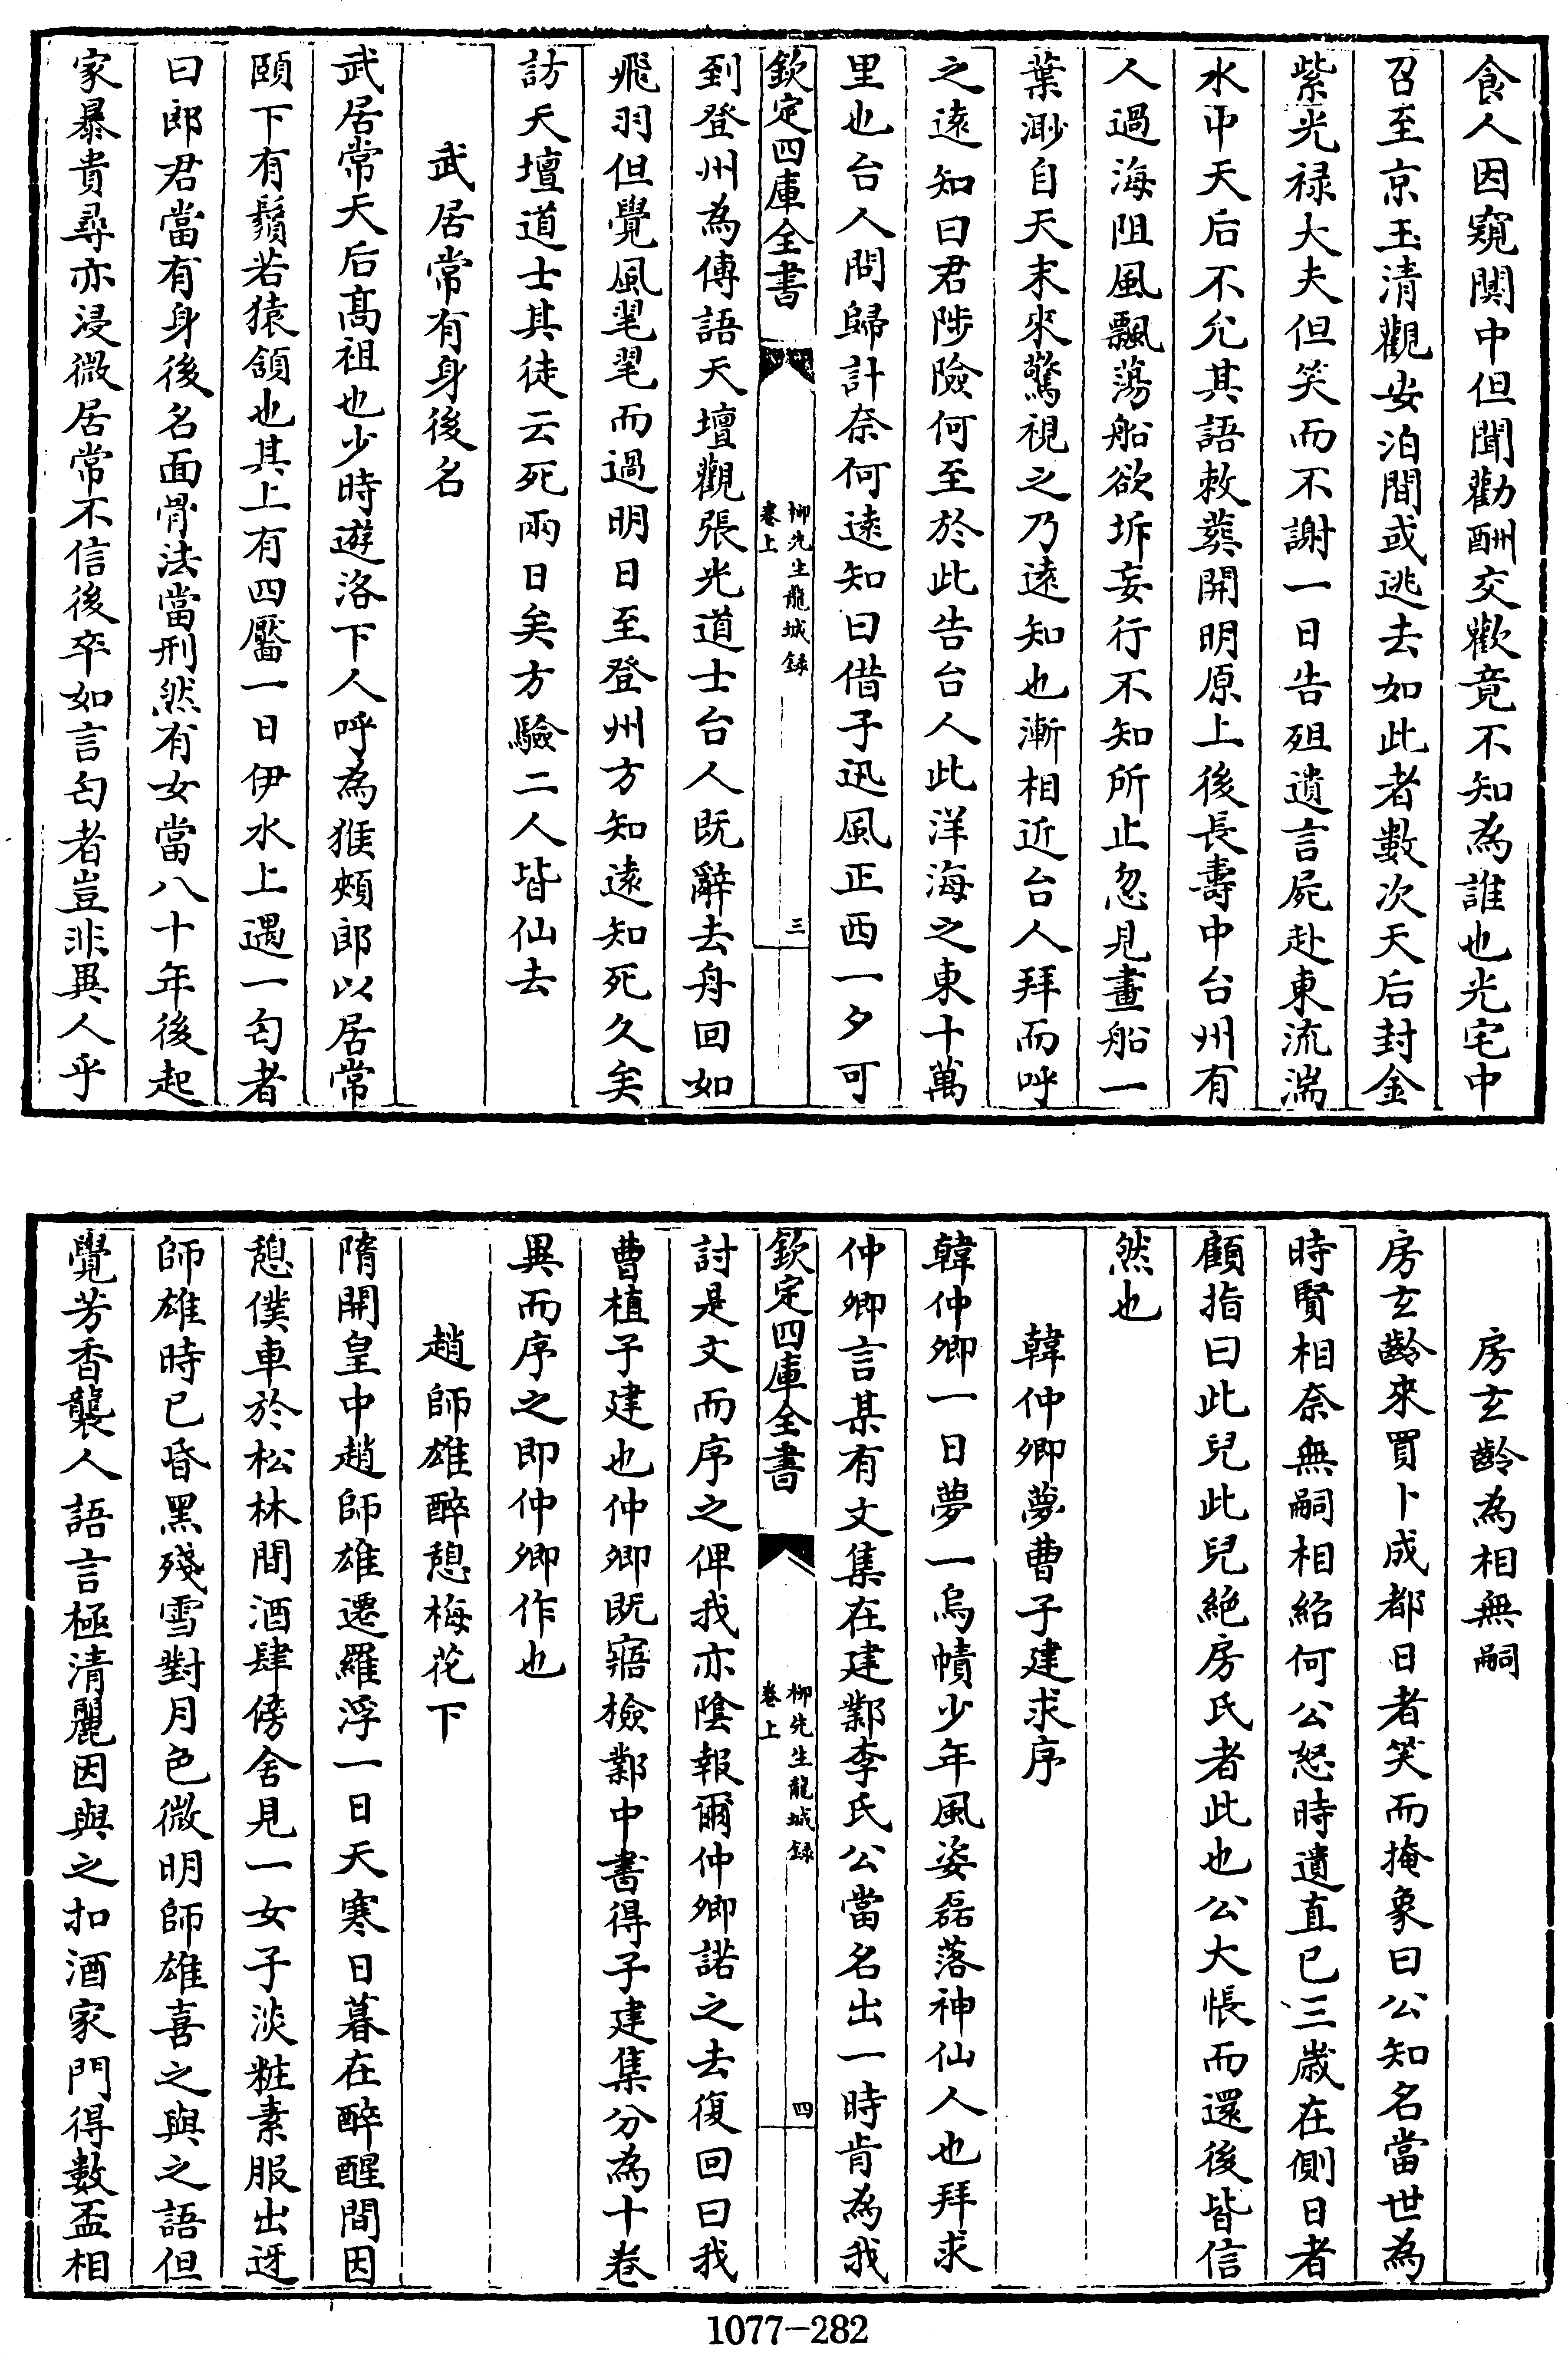 食人因窺闗中但聞勸酬交歡竟不知為誰也光宅中
召至京玉清觀安泊間或逃去如此者數次天后封金
紫光禄大夫但笑而不謝一日告殂遺言屍赴東流湍
水中天后不允其語敕葬開明原上後長壽中台州有
人過海阻風飄蕩船欲坼妄行不知所止忽見畫船一
葉渺自天末來驚視之乃逺知也漸相近台人拜而呼
之逺知曰君陟險何至於此告台人此洋海之東十萬
里也台人問歸計奈何逺知曰借子迅風正西一夕可
欽定四庫全書
柳先生龍城録
卷上
三
到登州為傳語天壇觀張光道士台人既辭去舟回如
飛羽但覺風毣毣而過明日至登州方知逺知死久矣
訪天壇道士其徒云死兩日矣方驗二人皆仙去
武居常有身後名
武居常天后髙祖也少時遊洛下人呼為猴頰郎以居常
頤下有鬚若猿頷也其上有四靨一日伊水上遇一匄者
曰郎君當有身後名面骨法當刑然有女當八十年後起
家暴貴尋亦浸微居常不信後卒如言匄者豈非異人乎
房玄齡為相無嗣
房玄齡來買卜成都日者笑而掩象曰公知名當世為
時賢相奈無嗣相紹何公怒時遺直已三歲在側日者
顧指曰此兒此兒絶房氏者此也公大悵而還後皆信
然也
韓仲卿夢曹子建求序
韓仲卿一日夢一烏幘少年風姿磊落神仙人也拜求
仲卿言某有文集在建鄴李氏公當名出一時肯為我
欽定四庫全書
柳先生龍城録
卷上
四
討是文而序之俾我亦陰報爾仲卿諾之去復回曰我
曹植子建也仲卿既寤檢鄴中書得子建集分為十卷
異而序之即仲卿作也
趙師雄醉憩梅花下
隋開皇中趙師雄遷羅浮一日天寒日暮在醉醒間因
憩僕車於松林間酒肆傍舍見一女子淡粧素服出迓
師雄時已昏黑殘雪對月色微明師雄喜之與之語但
覺芳香襲人語言極清麗因與之扣酒家門得數盃相
1077-282